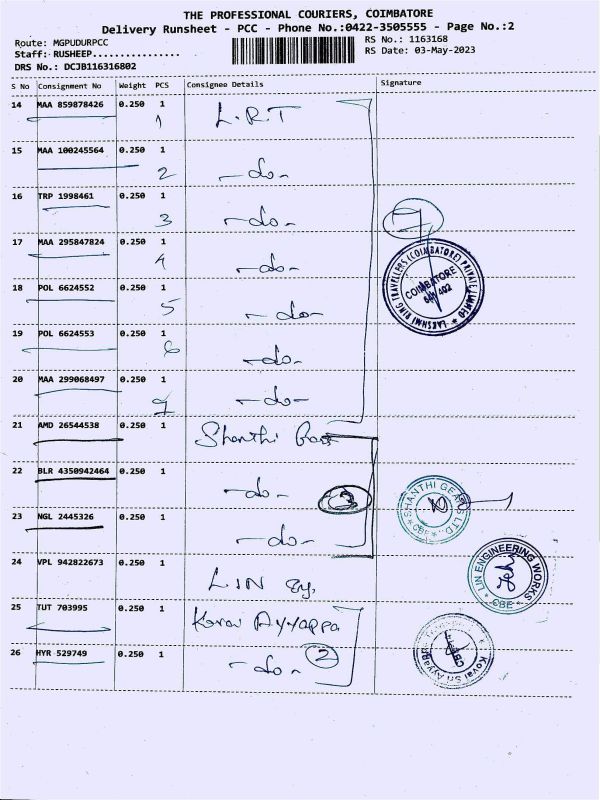 THE PROFESSIONAL COURIERS, COIMBATORE
Delivery Runsheet - PCC - Phone No.:0422-3505555 - Page No.:2
Route: MGPUDURPCC
RS No.: 1163168
Staff: RUSHEEP................
RS Date: 03-May-2023
DRS No.: DCJB116316802
S No Consignment No Weight PCS Consignee Details Signature
14 MAA 859878426 0.250 1 L.R.T
1
15 MAA 100245564 0.250 1
2 -do-
16 TRP 1998461 0.250 1
3 -do- 7
17 MAA 295847824 0.250 1
4 -do-
LAKSHMI RING TRAVELLERS (COIMBATORE) PRIVATE LIMITED
COIMBATORE
641 402
18 POL 6624552 0.250 1
5 -do-
19 POL 6624553 0.250 1
6 -do-
20 MAA 299068497 0.250 1
7 -do-
21 AMD 26544538 0.250 1 Shanthi
22 BLR 4350942464 0.250 1
-do- 3
SHANTHI GEARS LTD.,
CBE
23 NGL 2445326 0.250 1
-do-
24 VPL 942822673 0.250 1
LIN Eg,
LIN ENGINEERING WORKS
CBE
25 TUT 703995 0.250 1 Kovai Ayyappa
26 HYR 529749 0.250 1 -do- 2
Kovai Sri Ayyappa
CBE